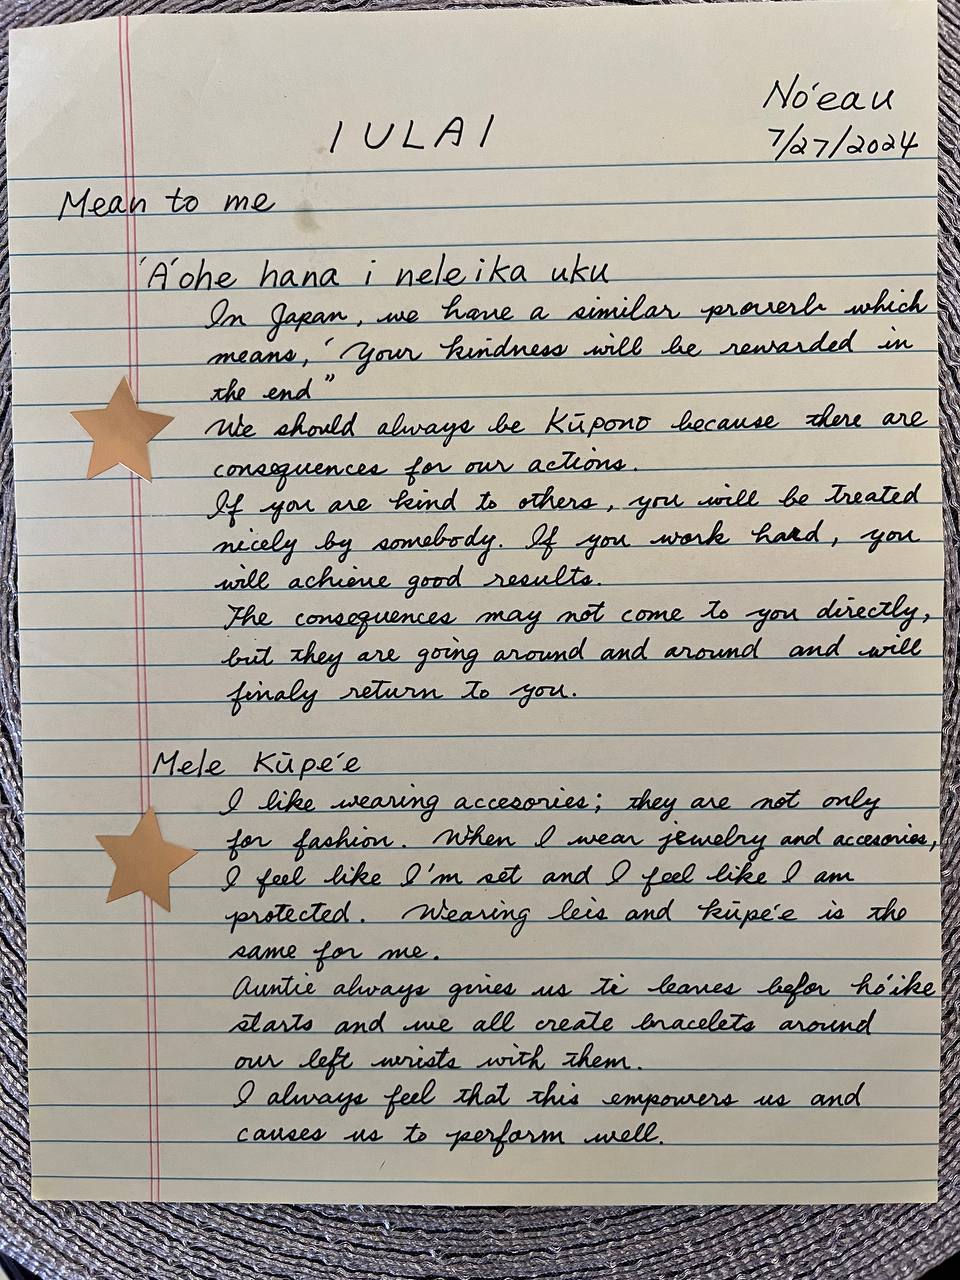 No'eau
IULAI
7/27/2024
Mean to me
'A'ohe hana i nele i ka uku
In Japan, we have a similar proverb which
means, “Your kindness will be rewarded in
the end”
We should always be Kūpono because there are
consequences for our actions.
If you are kind to others, you will be treated
nicely by somebody. If you work hard, you
will achieve good results.
The consequences may not come to you directly,
but they are going around and around and will
finaly return to you.
Mele Kūpe'e
I like wearing accesories; they are not only
for fashion. When I wear jewelry and accesories,
I feel like I'm set and I feel like I am
protected. Wearing leis and kūpe'e is the
same for me.
Auntie always gives us ti leaves befor hō'ike
starts and we all create bracelets around
our left wrists with them.
I always feel that this empowers us and
causes us to perform well.